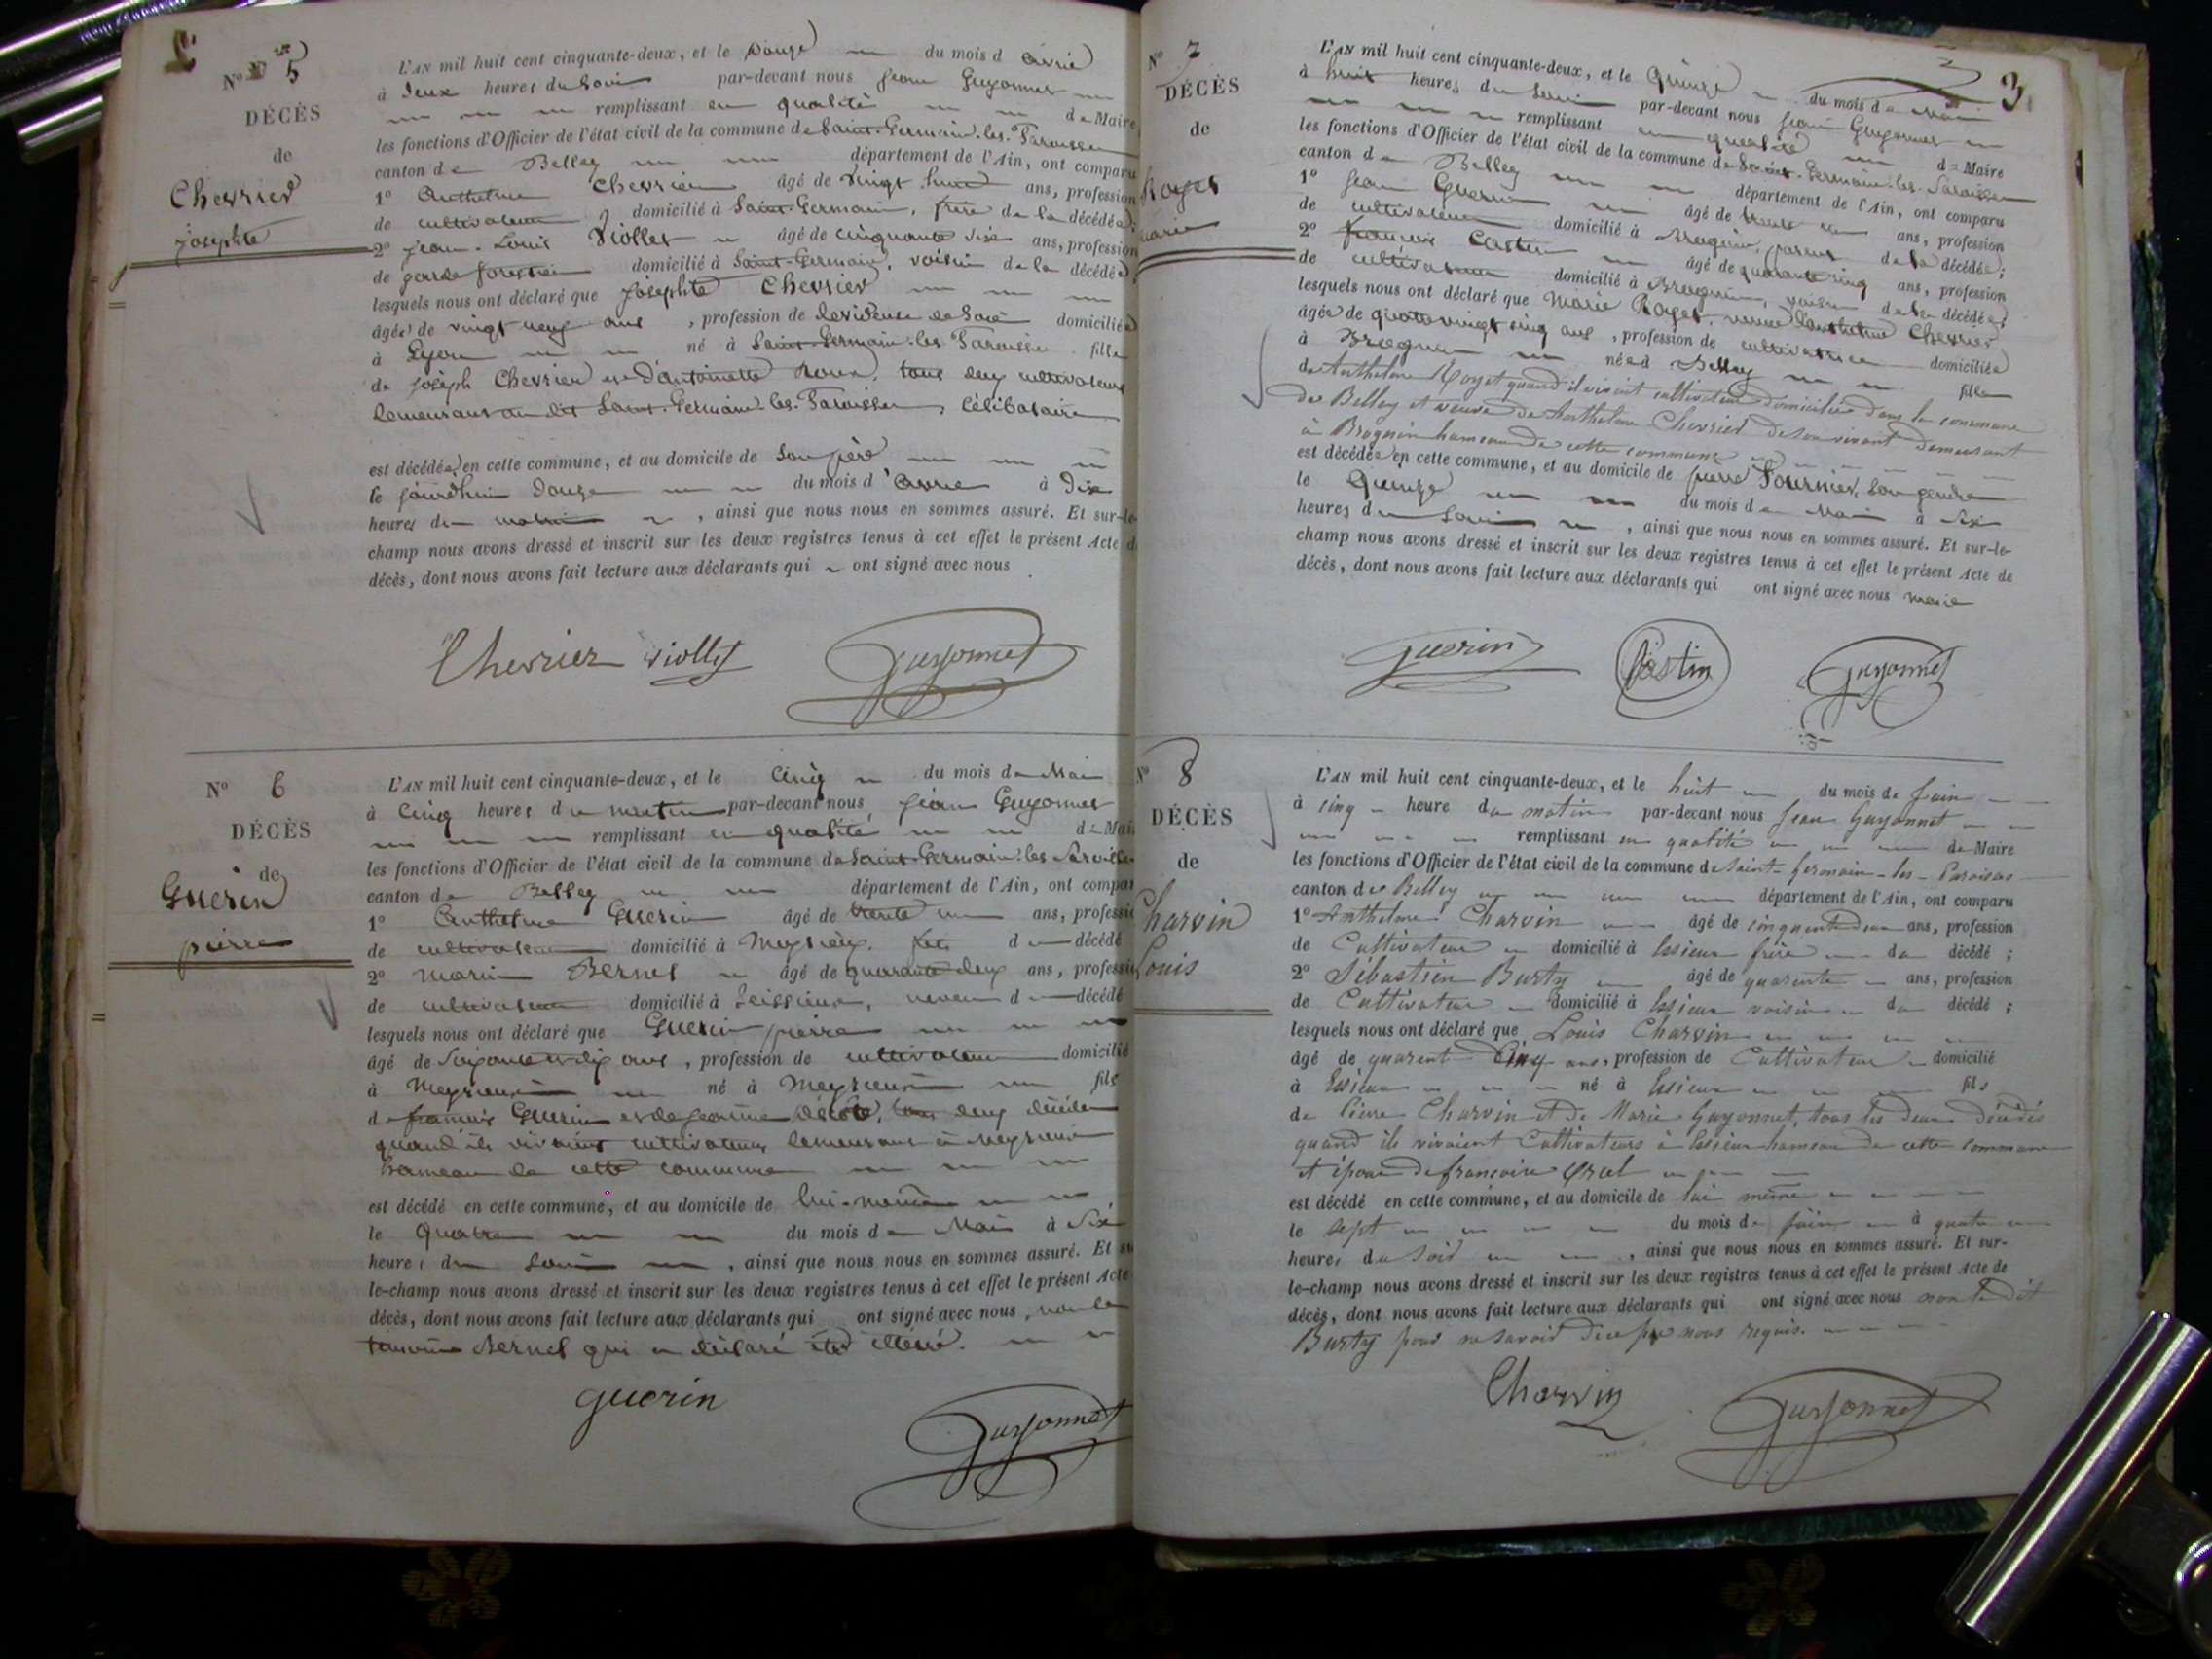 N° 5
DÉCÈS
de
Chevrier
Josephte
L'AN mil huit cent cinquante-deux, et le Douze du mois d'avril
à deux heures du Soir par-devant nous Jean Guyonnet
remplissant en qualité de Maire
les fonctions d'Officier de l'état civil de la commune de Saint-Germain-les-Paroisses
canton de Belley département de l'Ain, ont comparu
1° Anthelme Chevrier âgé de vingt huit ans, profession
de cultivateur domicilié à Saint-Germain, frère de la décédée;
2° Jean-Louis Viollet âgé de cinquante six ans, profession
de garde forestier domicilié à Saint-Germain, voisin de la décédée
lesquels nous ont déclaré que Josephte Chevrier
âgée de vingt neuf ans, profession de devideuse de Soie domiciliée
à Lyon né à Saint-Germain-les-Paroisses fille
de Joseph Chevrier et d'antoinette Roux, tous deux cultivateurs
demeurant au dit Saint-Germain-les-Paroisses, Célibataire
est décédée en cette commune, et au domicile de Son père
le jourd'hui Douze du mois d'avril à Dix
heures du matin, ainsi que nous nous en sommes assuré. Et sur-le-
champ nous avons dressé et inscrit sur les deux registres tenus à cet effet le présent Acte de
décès, dont nous avons fait lecture aux déclarants qui ont signé avec nous
Chevrier Viollet Guyonnet
N° 6
DÉCÈS
de
Guerin
pierre
L'AN mil huit cent cinquante-deux, et le Cinq du mois de Mai
à Cinq heures du matin par-devant nous Jean Guyonnet
remplissant en qualité de Maire
les fonctions d'Officier de l'état civil de la commune de Saint-Germain-les-Paroisses
canton de Belley département de l'Ain, ont comparu
1° Anthelme Guerin âgé de trente ans, profession
de cultivateur domicilié à Meyrieux, fils du décédé
2° Marin Bernet âgé de quarante deux ans, profession
de cultivateur domicilié à Seissieux, neveu du décédé
lesquels nous ont déclaré que Guerin pierre
âgé de Soixante et dix ans, profession de cultivateur domicilié
à Meyrieux né à Meyrieux fils
de françois Guerin et de Jeanne, tous deux décédés
quand ils vivaient cultivateurs demeurant à Meyrieux
hameau de cette commune
est décédé en cette commune, et au domicile de lui-même
le Quatre du mois de Mai à Six
heures du Soir, ainsi que nous nous en sommes assuré. Et sur-
le-champ nous avons dressé et inscrit sur les deux registres tenus à cet effet le présent Acte
décès, dont nous avons fait lecture aux déclarants qui ont signé avec nous, non le
témoin Bernet qui a déclaré être illétré.
guerin Guyonnet
3
N° 7
DÉCÈS
de
Royet
Marie
L'AN mil huit cent cinquante-deux, et le Quinze du mois de Mai
à huit heures du Soir par-devant nous Jean Guyonnet
remplissant en qualité de Maire
les fonctions d'Officier de l'état civil de la commune de Saint-Germain-les-Paroisses
canton de Belley département de l'Ain, ont comparu
1° Jean Guerin âgé de trente ans, profession
de cultivateur domicilié à Brognin, parent de la décédée;
2° françois Castin âgé de quarante cinq ans, profession
de cultivateur domicilié à Brognin, voisin de la décédée;
lesquels nous ont déclaré que Marie Royet, veuve d'anthelme Chevrier
âgée de quatrevingt cinq ans, profession de cultivatrice domiciliée
à Brognin née à Belley fille
de Anthelme Royet quand il vivait cultivateur domicilié dans la commune
de Belley et veuve de Anthelme Chevrier de son vivant demeurant
à Brognin hameau de cette commune
est décédée en cette commune, et au domicile de pierre Fournier, son gendre
le Quinze du mois de Mai à Six
heures du Soir, ainsi que nous nous en sommes assuré. Et sur-le-
champ nous avons dressé et inscrit sur les deux registres tenus à cet effet le présent Acte de
décès, dont nous avons fait lecture aux déclarants qui ont signé avec nous
Guerin Castin Guyonnet
N° 8
DÉCÈS
de
Charvin
Louis
L'AN mil huit cent cinquante-deux, et le huit du mois de juin
à cinq heure du matin par-devant nous Jean Guyonnet
remplissant en qualité de Maire
les fonctions d'Officier de l'état civil de la commune de Saint-Germain-les-Paroisses
canton de Belley département de l'Ain, ont comparu
1° Anthelme Charvin âgé de cinquante deux ans, profession
de Cultivateur domicilié à Essieux frère du décédé;
2° Sébastien Burty âgé de quarente ans, profession
de Cultivateur domicilié à Essieux voisin du décédé;
lesquels nous ont déclaré que Louis Charvin
âgé de quarent Cinq ans, profession de Cultivateur domicilié
à Essieux né à Essieux fils
de Pierre Charvin et de Marie Guyonnet, tous les deux décédés
quand ils vivaient Cultivateurs à Essieux hameau de cette commune
et époux de françoise
est décédé en cette commune, et au domicile de lui même
le sept du mois de juin à quatre
heures du Soir, ainsi que nous nous en sommes assuré. Et sur-
le-champ nous avons dressé et inscrit sur les deux registres tenus à cet effet le présent Acte de
décès, dont nous avons fait lecture aux déclarants qui ont signé avec nous non le dit
Burty pour ne savoir de ce par nous requis.
Charvin Guyonnet